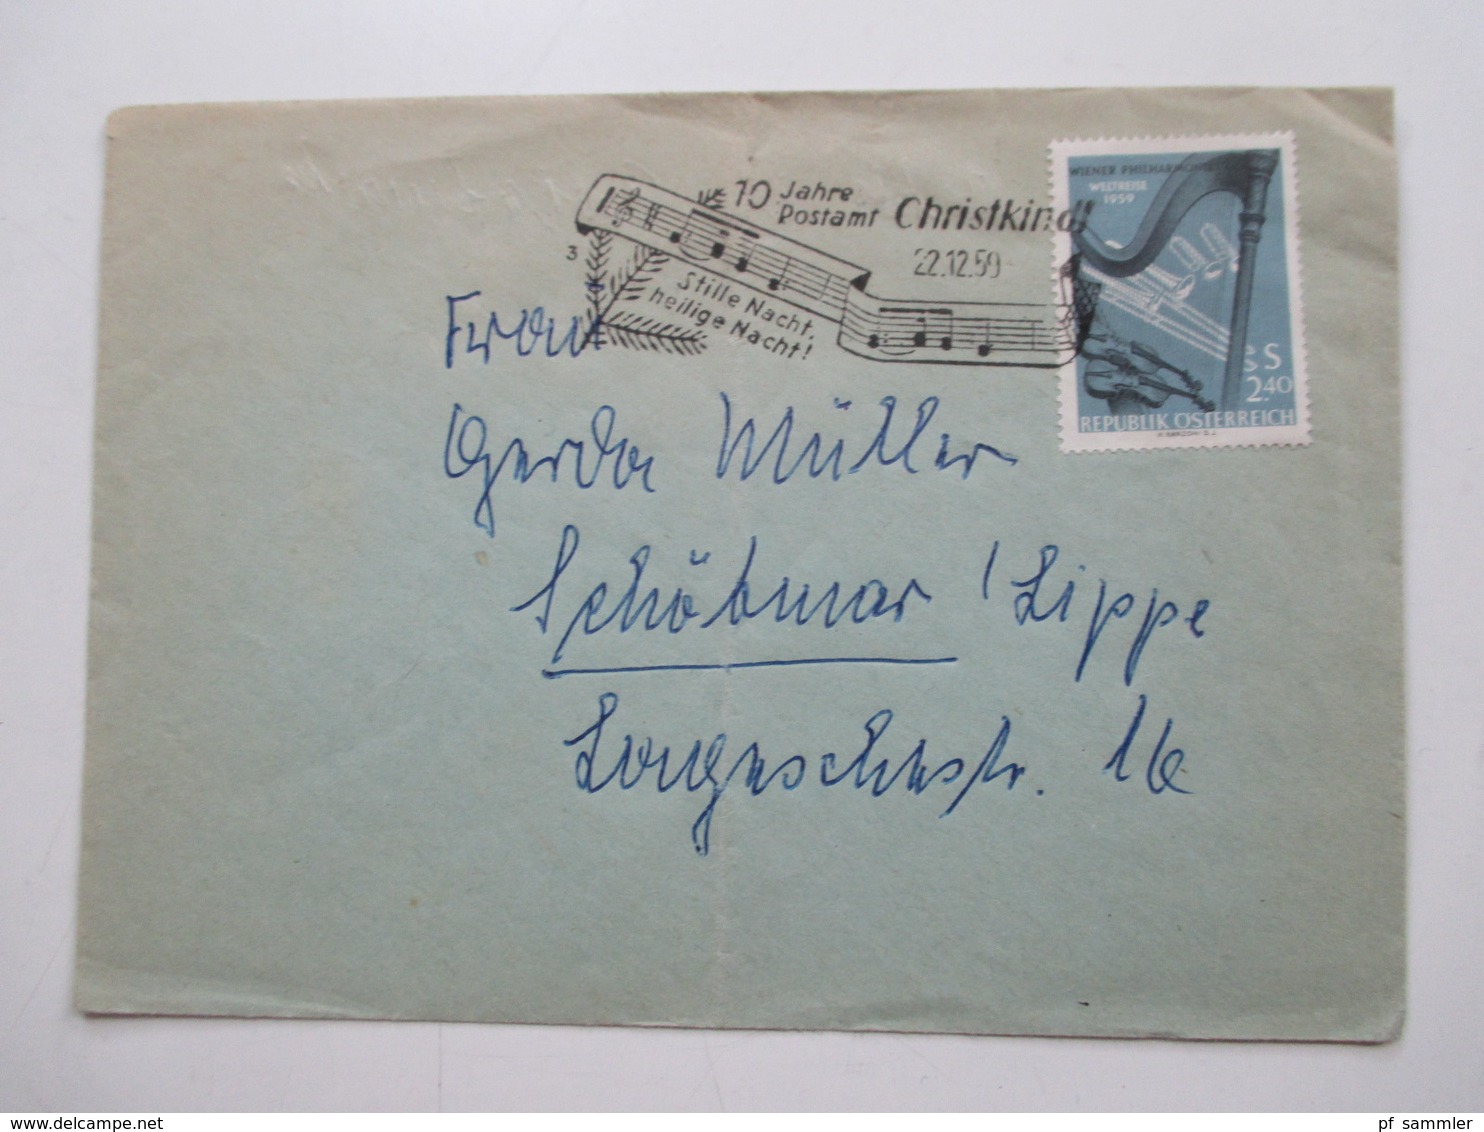 10 Jahre
Postamt Christkindl
22.12.59
3
Stille Nacht,
heilige Nacht!
WIENER PHILHARMONIKER
WELTREISE
1959
S
2.40
REPUBLIK ÖSTERREICH
Frau
Gerda Müller
Schötmar / Lippe
16
delcampe.net
pf_sammler